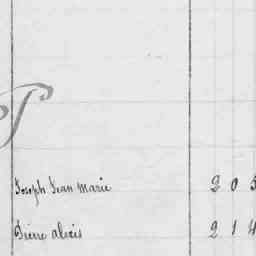 P
Joseph Jean Marie 205
Pierre aloïs 214